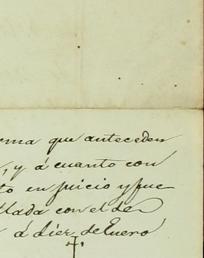 rma que anteceden
, y á cuanto con
to en juicio y fue
llada con el de
á diez de Enero